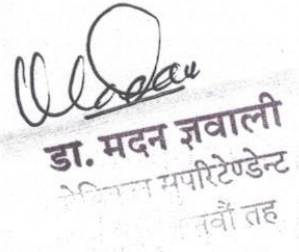 डा. मदन ज्ञवाली
सुपरिटेण्डेन्ट
तह